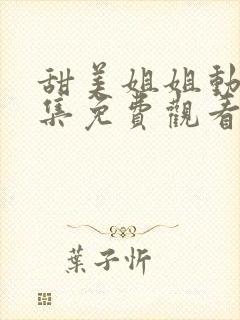 甜美姐姐動
集免費觀看
葉子忻